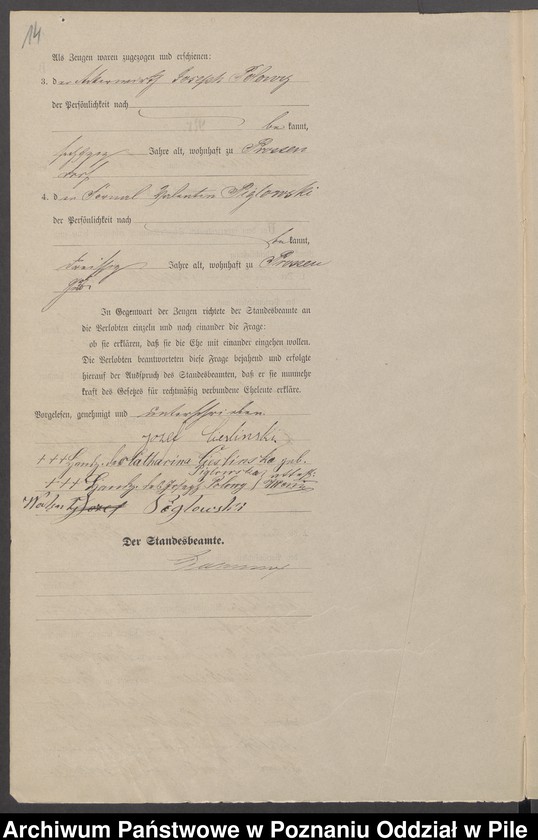 14
Als Zeugen waren zugezogen und erschienen:
3. der Ackerwirth Joseph Polowy
der Persönlichkeit nach
be kannt,
Jahre alt, wohnhaft zu Brosen
dorf
4. der Fornal Valentin Piglowski
der Persönlichkeit nach
be kannt,
dreißig Jahre alt, wohnhaft zu
In Gegenwart der Zeugen richtete der Standesbeamte an
die Verlobten einzeln und nach einander die Frage:
ob sie erklären, daß sie die Ehe mit einander eingehen wollen.
Die Verlobten beantworteten diese Frage bejahend und erfolgte
hierauf der Ausspruch des Standesbeamten, daß er sie nunmehr
kraft des Gesetzes für rechtmäßig verbundene Eheleute erkläre.
Vorgelesen, genehmigt und unterschrieben
Jozef Cieslinski
+++ Handz. der Katharina Cieslinska geb.
Piglowska
+++ Handz. des Joseph Polowy
Jozef Piglowski
Der Standesbeamte.
Archiwum Państwowe w Poznaniu Oddział w Pile